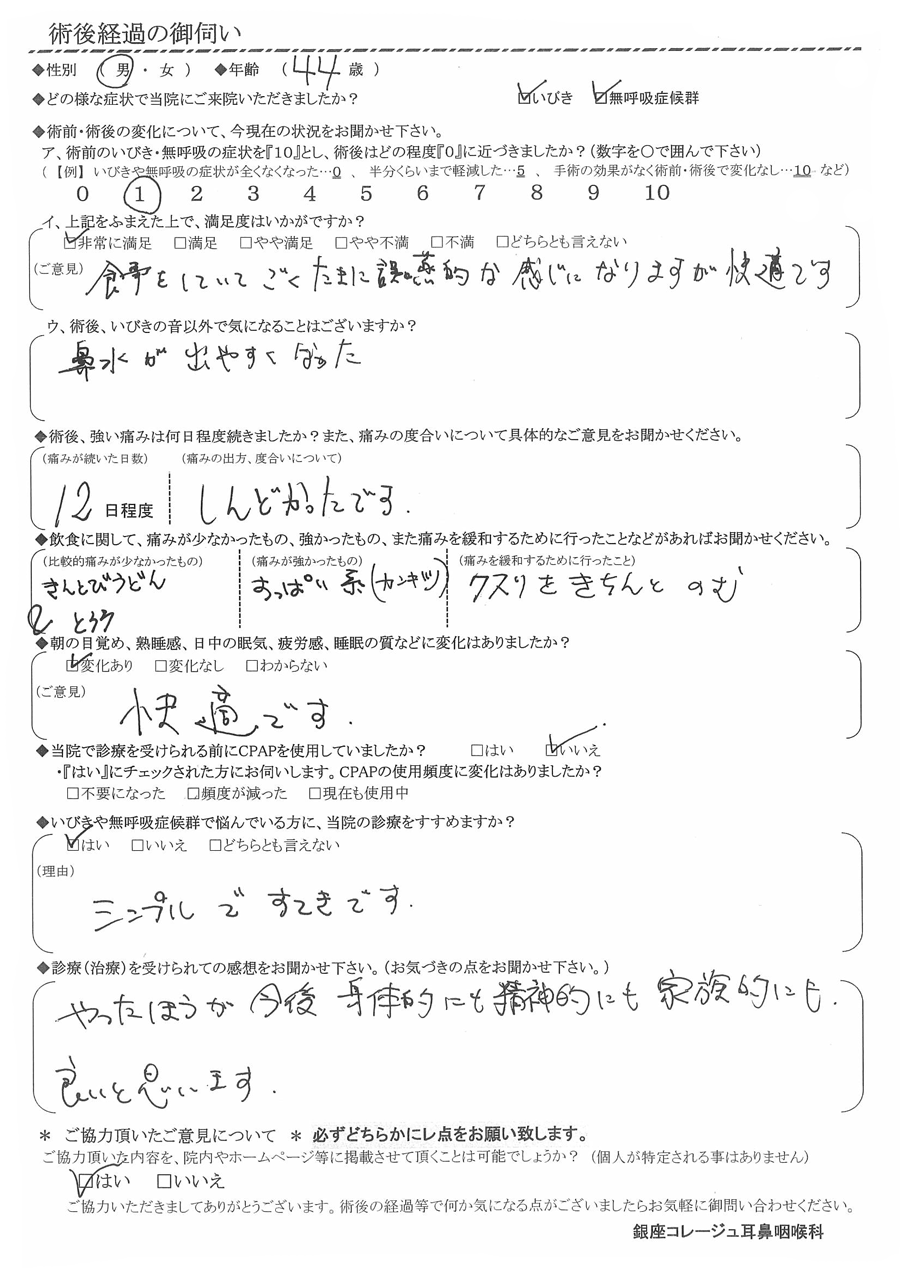 術後経過の御伺い
◆性別 ( 男 ・ 女 ) ◆年齢 ( 44 歳 )
◆どの様な症状で当院にご来院いただきましたか? ☑いびき ☑無呼吸症候群
◆術前・術後の変化について、今現在の状況をお聞かせ下さい。
ア、術前のいびき・無呼吸の症状を『10』とし、術後はどの程度『0』に近づきましたか?(数字を〇で囲んで下さい)
(【例】いびきや無呼吸の症状が全くなくなった…0 、 半分くらいまで軽減した…5 、 手術の効果がなく術前・術後で変化なし…10 など)
0 1 2 3 4 5 6 7 8 9 10
イ、上記をふまえた上で、満足度はいかがですか?
☑非常に満足 □満足 □やや満足 □やや不満 □不満 □どちらとも言えない
(ご意見) 食事をしていてごくたまに誤嚥的な感じになりますが快適です
ウ、術後、いびきの音以外で気になることはございますか?
鼻水が出やすくなった
◆術後、強い痛みは何日程度続きましたか?また、痛みの度合いについて具体的なご意見をお聞かせください。
(痛みが続いた日数) (痛みの出方、度合いについて)
12 日程度 しんどかったです.
◆飲食に関して、痛みが少なかったもの、強かったもの、また痛みを緩和するために行ったことなどがあればお聞かせください。
(比較的痛みが少なかったもの) (痛みが強かったもの) (痛みを緩和するために行ったこと)
きんとびうどん すっぱい系(カンキツ) クスリをきちんとのむ
とうふ
◆朝の目覚め、熟睡感、日中の眠気、疲労感、睡眠の質などに変化はありましたか?
☑変化あり □変化なし □わからない
(ご意見)
快適です.
◆当院で診療を受けられる前にCPAPを使用していましたか? □はい ☑いいえ
・『はい』にチェックされた方にお伺いします。CPAPの使用頻度に変化はありましたか?
□不要になった □頻度が減った □現在も使用中
◆いびきや無呼吸症候群で悩んでいる方に、当院の診療をすすめますか?
☑はい □いいえ □どちらとも言えない
(理由)
シンプルですてきです.
◆診療(治療)を受けられての感想をお聞かせ下さい。(お気づきの点をお聞かせ下さい。)
やったほうが今後身体的にも精神的にも家族的にも.
良いと思います.
＊ ご協力頂いたご意見について ＊ 必ずどちらかにレ点をお願い致します。
ご協力頂いた内容を、院内やホームページ等に掲載させて頂くことは可能でしょうか? (個人が特定される事はありません)
☑はい □いいえ
ご協力いただきましてありがとうございます。術後の経過等で何か気になる点がございましたらお気軽に御問い合わせください。
銀座コレージュ耳鼻咽喉科